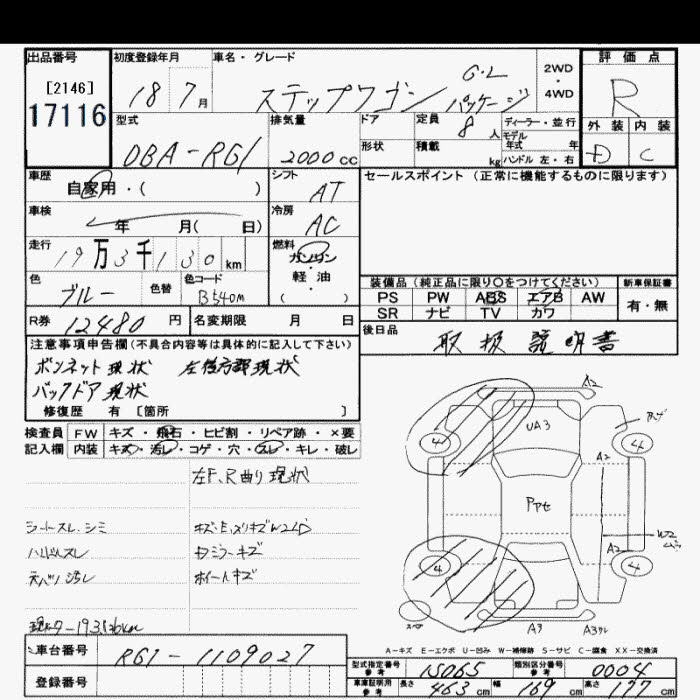 出品番号
[2146]
17116
初度登録年月
18 7月
車名・グレード
ステップワゴン G・L パッケージ
2WD
・
4WD
評価点
R
外装 内装
D C
型式
DBA-RG1
排気量
2000cc
ドア
形状
定員 8人
積載 kg
ディーラー・並行
モデル
年式 年
ハンドル 左・右
車歴
自家用・( )
シフト
AT
セールスポイント (正常に機能するものに限ります)
車検
年 月( 日)
冷房
AC
走行
19万3千130km
燃料
ガソリン
・
軽油
( )
色
ブルー
色替
色コード
B540M
装備品 (純正品に限り○をつけてください)
PS PW ABS エアB AW
SR ナビ TV カワ
新車保証書
有・無
R券 12480円
名変期限 月 日
後日品
取扱説明書
注意事項申告欄(不具合内容等は具体的に記入して下さい)
ボンネット現状 左後方部現状
バックドア現状
修復歴 有 [箇所 ]
検査員
記入欄
FW キズ・飛石・ヒビ割・リペア跡・×要
内装 キズ・汚レ・コゲ・穴・スレ・キレ・破レ
左F、R曲り現状
シートスレ、シミ
ハンドルスレ
天バリ汚レ
ホイールキズ
A2
UA3
4
4
A2
Pアセ
W2
A2
4
4
A3
A-キズ E-エクボ U-凹み W-補修跡 S-サビ C-腐食 XX-交換済
車台番号
RG1-1109027
登録番号
型式指定番号
参考
15065
類別区分番号
参考
0004
車庫証明用
参考
長さ 463cm 幅 169cm 高さ 177cm